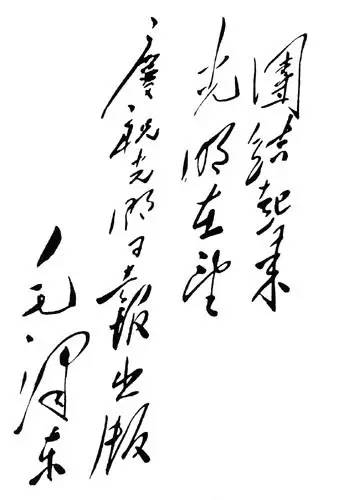 團結起来
光明在望
慶祝光明日報出版
毛澤东